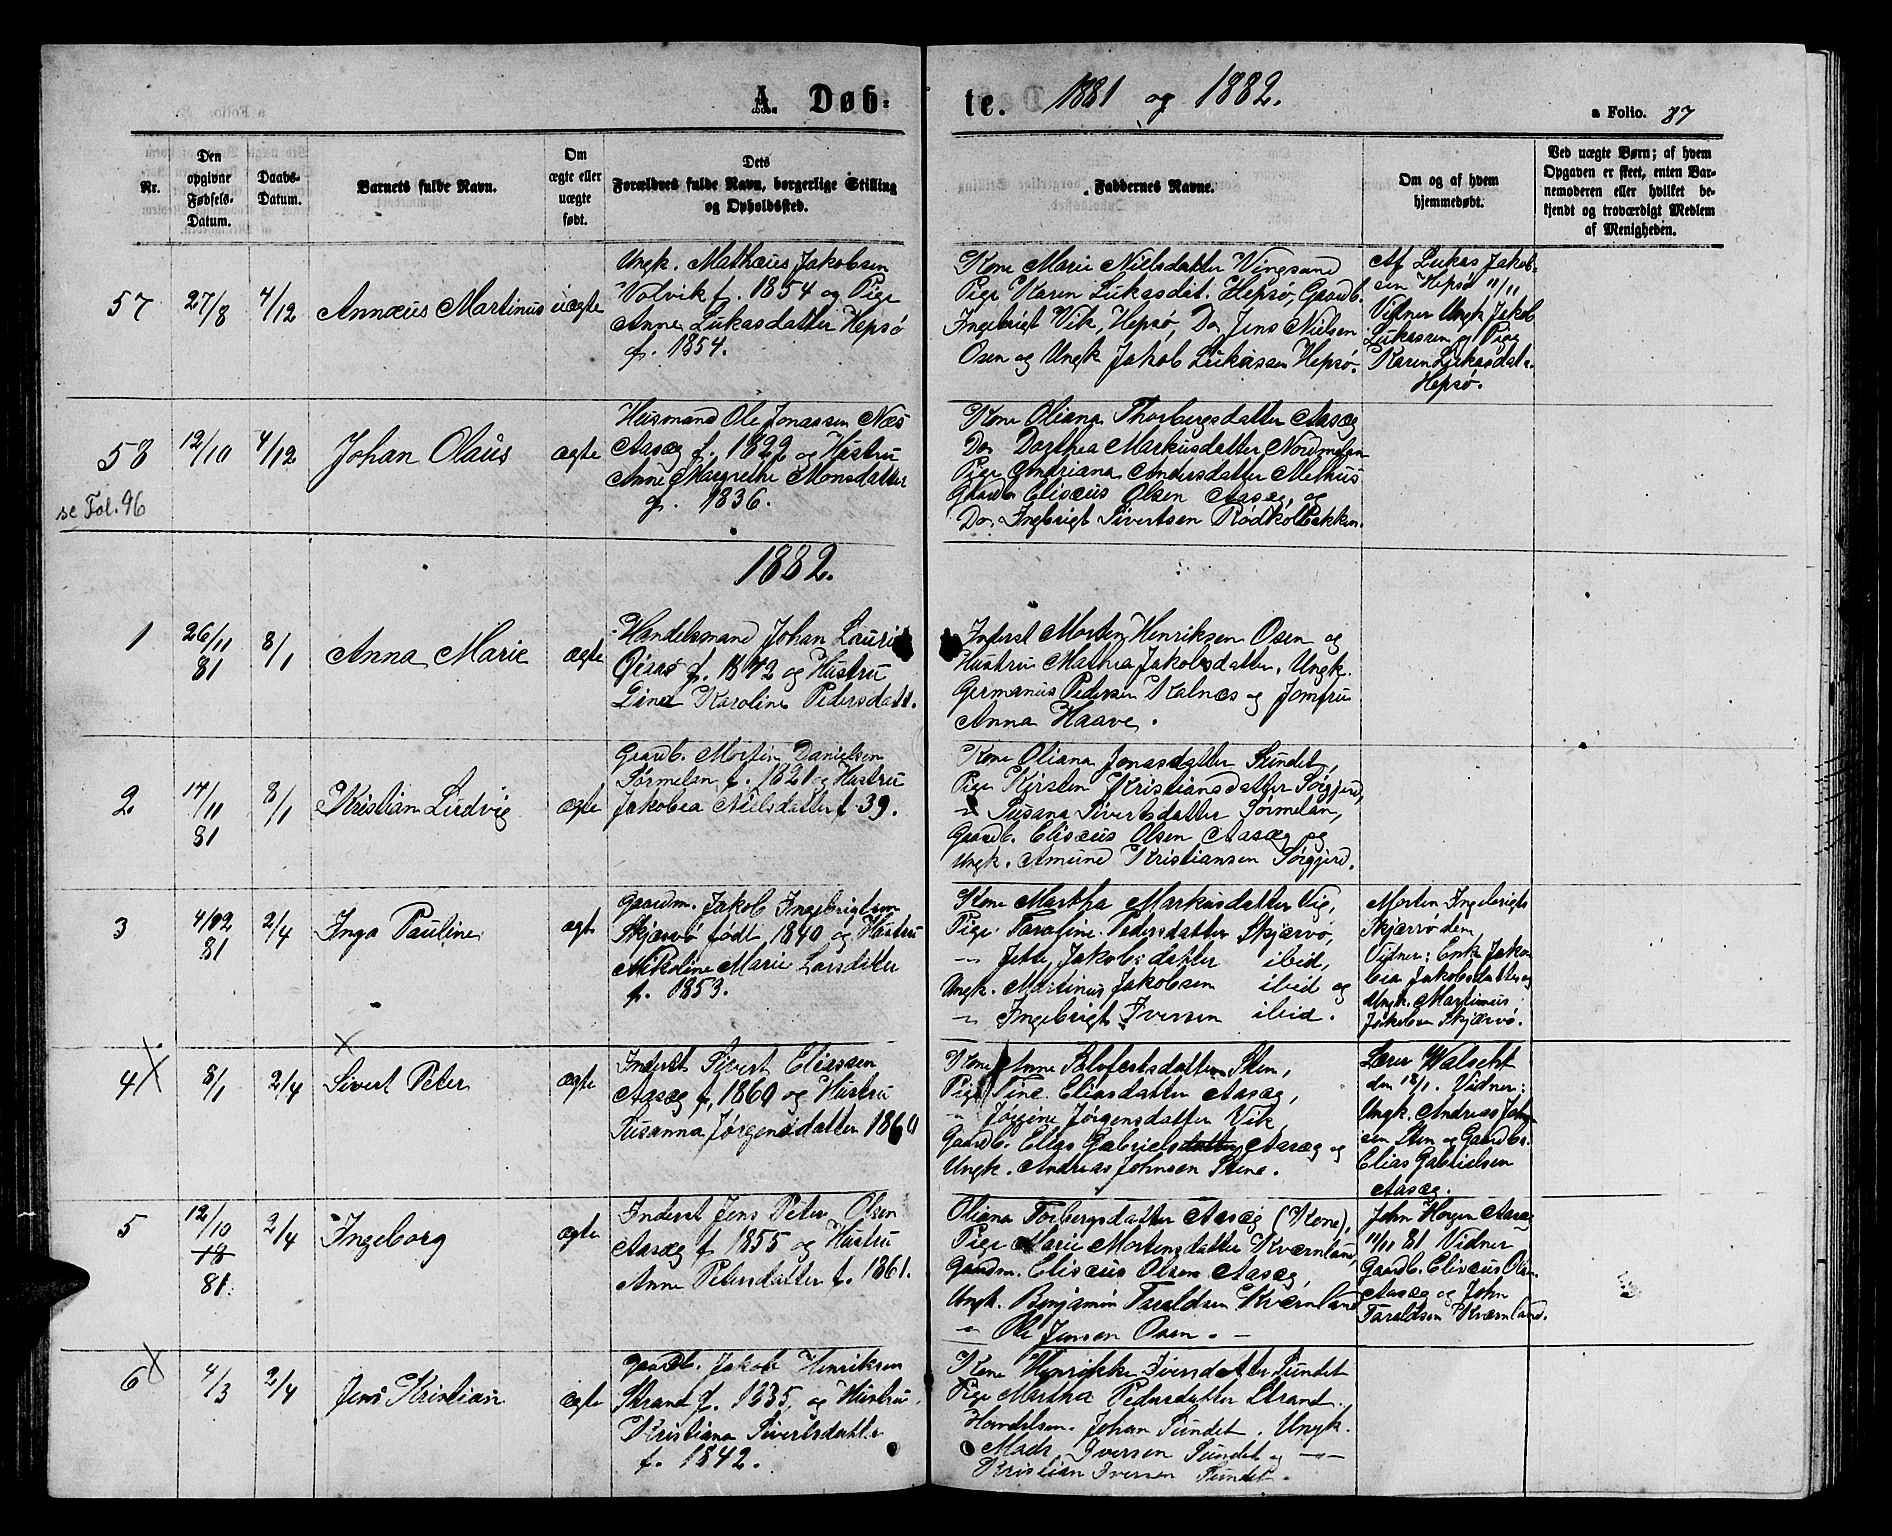 A. Døb=
te. 1881 og 1882.
a Folio. 87
Nr.
Den opgivne Fødsels-Datum.
Daabs-Datum.
Barnets fulde Navn.
Om ægte eller uægte født.
Dets Forældres fulde Navn, borgerlige Stilling og Opholdssted.
Faddernes Navne.
Om og af hvem hjemmedøbt.
Ved uægte Børn; af hvem Opgaven er skeet, enten Barnemoderen eller hvilket bekjendt og troværdigt Medlem af Menigheden.
57 27/8 4/12 Annæus Martinus uægte
Ungk. Mathæus Jakobsen
Volvik f. 1854 og Pige
Anne Lukasdatter Hepsø
f. 1854.
Kone Marie Nielsdatter Vingsand
Pige Karen Lukasdat. Hepsø, Gaardb.
Ingebrigt Vik, Hepsø, Do. Jens Nielsen
Osen og Ungk Jakob Lukassen Hepsø.
Af Lukas Jakob-
sen Hepsø 11/11
Vidner Ungk Jakob
Lukassen og Pige
Karen Lukasdat.
Hepsø.
58 12/10 4/12 Johan Olaus ægte
Husmand Ole Jonassen Næs
Aasæg f. 1822 og Hustru
Anne Margrethe Monsdatter
f. 1836.
Kone Oliana Thorbergsdatter Aasæg
Do. Dorthea Markusdatter Nordmelan
Pige Andriana Andersdatter Melhus
Gaardb. Elisæus Olsen Aasæg, og
Do. Ingebrigt Sivertsen Rødkolbakken.
se Fol. 96
1882.
1 26/11 81 8/1 Anna Marie ægte
Handelsmand Johan Lauri
f. 1842 og Hustru
Line Karoline Pedersdatt.
Inderst Morten Henriksen Osen og
Hustru Mathea Jakobsdatter, Ungk.
Germanus Pedersen Kalnæs og Jomfru
Anna Haave.
2 17/11 81 8/1 Kristian Ludvig ægte
Gaardb. Morten Danielsen
Sørmelan f. 1821 og Hustru
Jakobea Nielsdatter f. 39.
Kone Oliana Jonasdatter Sundet,
Pige Kirsten Kristiansdatter Sørgjerd,
" Susana Sivertsdatter Sørmelan,
Gaardb. Elisæus Olsen Aasæg og
Ungk. Amund Kristiansen Sørgjerd.
3 4/12 81 2/4 Inga Pauline ægt
Gaardm. Jakob Ingebrigtsen
Skjærvø født 1840 og Hustru
Nikoline Marie Larsdatter
f. 1853.
Kone Martha Markusdatter Vig,
Pige Sarafine Pedersdatter Skjærvø,
" Jette Jakobsdatter ibid,
Ungk. Martinus Jakobsen ibid og
" Ingebrigt Iversen ibid.
Morten Ingebrigts
Skjærvø dem
Vidner: Enk Jako
bea Jakobsdatter og
Ungk. Martinus
Jakobsen Skjærvø.
4 8/1 2/4 Sivert Peter ægte
Inderst Sivert Eliassen
Aasæg f. 1860 og Hustru
Susanna Jørgensdatter 1860
Kone Anne Sten,
Pige Tine Eliasdatter Aasæg,
" Jørgine Jørgensdatter Vik,
Gaardb. Elias Gabrielsdatter Aasæg og
Ungk. Andreas Johnsen Stene.
Lærer Walseth
den 18/1. Vidner:
Ungk. Andreas John
sen Sten og Gaardbr.
Elias Gabrielsen
Aasæg.
5 12/10 18 81. 2/4 Ingeborg ægte
Inderst Jens Peter Olsen
Aasæg f. 1855 og Hustru
Anne Petersdatter f. 1861.
Oliana Torbergsdatter Aasæg (Kone),
Pige Marie Mortensdatter Kværnland,
Gaardm. Elisæus Olsen Aasæg,
Ungk. Benjamin Taraldsen Kværnland
" Ole Jensen Osen. -
John Aasæg
11/11 81 Vidner
Gaardb. Elisæus Olsen
Aasæg og John
Taraldsen Kværnland.
6 4/3 2/4 Jens Kristian ægte
Gaardb. Jakob Henriksen
Strand f. 1835, og Hustru
Kristiana Sivertsdatter
f. 1842.
Kone Henrikke Iversdatter Sundet
Pige Martha Pedersdatter Strand.
Handelsm. Johan Sundet. Ungk.
Mads Iversen Sundet og -"-
Kristian Iversen Sundet.